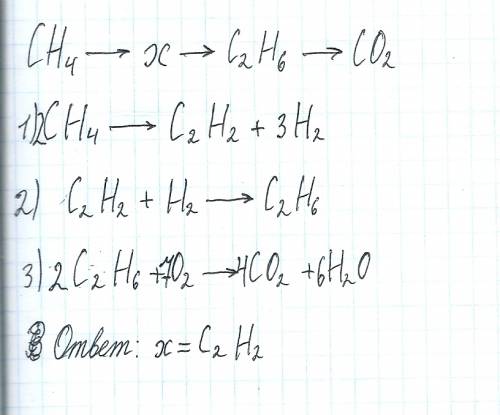 CH₄ → x → C₂H₆ → CO₂
1) 2CH₄ → C₂H₂ + 3H₂
2) C₂H₂ + H₂ → C₂H₆
3) 2C₂H₆ + 7O₂ → 4CO₂ + 6H₂O
Ответ: x = C₂H₂